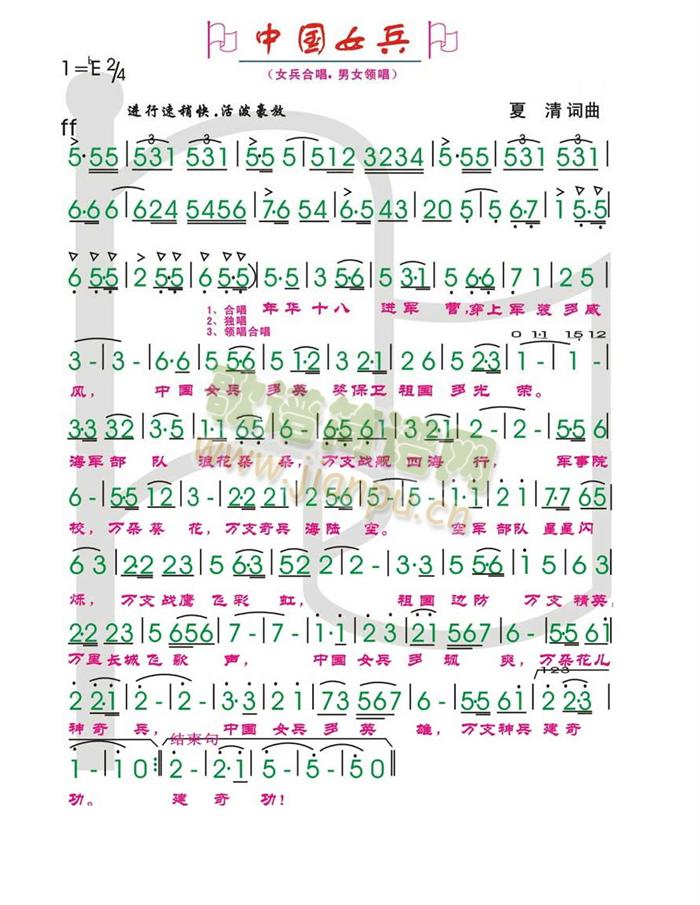 中国女兵
（女兵合唱．男女领唱）
1=♭E 2/4
进行速稍快.活泼豪放
夏 清 词曲
ff
5·55|531 531|5·5 5|512 3234|5·55|531 531|
6·66|624 5456|7·6 54|6·5 43|20 5|5 6·7|1 5·5|
6 5·5|2 5·5|6 5·5)|5·5|3 56|5 3·1|5 66|7 1|2 5|
1、合唱 年华 十 八 进军 营,穿上军 装 多威
2、独唱
3、领唱合唱
0 1·1 15 12
3 -|3 -|6·6|5 56|5 12|3 21|2 6|5 23|1 -|1 -|
风， 中国 女兵 多英 姿保卫 祖国 多光 荣。
3·3 32|3·5|1·1 65|6 -|6·5 61|3 21|2 -|2 -|5·5|
海军部 队 浪花朵 朵，万支战舰 四海 行， 军事院
6 -|5·5 12|3 -|2·2 21|1256|5 -|5 -|1·1|2 1|7·7 65|
校，万朵葵 花，万支奇兵 海陆 空。 空军 部队 星星闪
6 3|2·2 23|5 6·3|52 2|2 -|2 -|3·3|5 5·6|5 1|
烁， 万支战鹰 飞彩 虹， 祖国 边防 万支 精英,
2·2 23|5 656|7 -|7 -|1·1|2 3|21|567|6 -|5·5 61|
万里长城 飞歌 声， 中国 女兵 多飒 爽，万朵花儿
123
2 2·1|2 -|2 -|3·3|2 1|73 567|6 -|5·5 61|2 23|
神奇 兵， 中国 女兵 多英 雄，万支神兵 建奇
结束句
1 -|10:|2 -|2·1|5 -|5 -|50‖
功。 建 奇 功！
歌谱简谱网
www.jianpu.cn